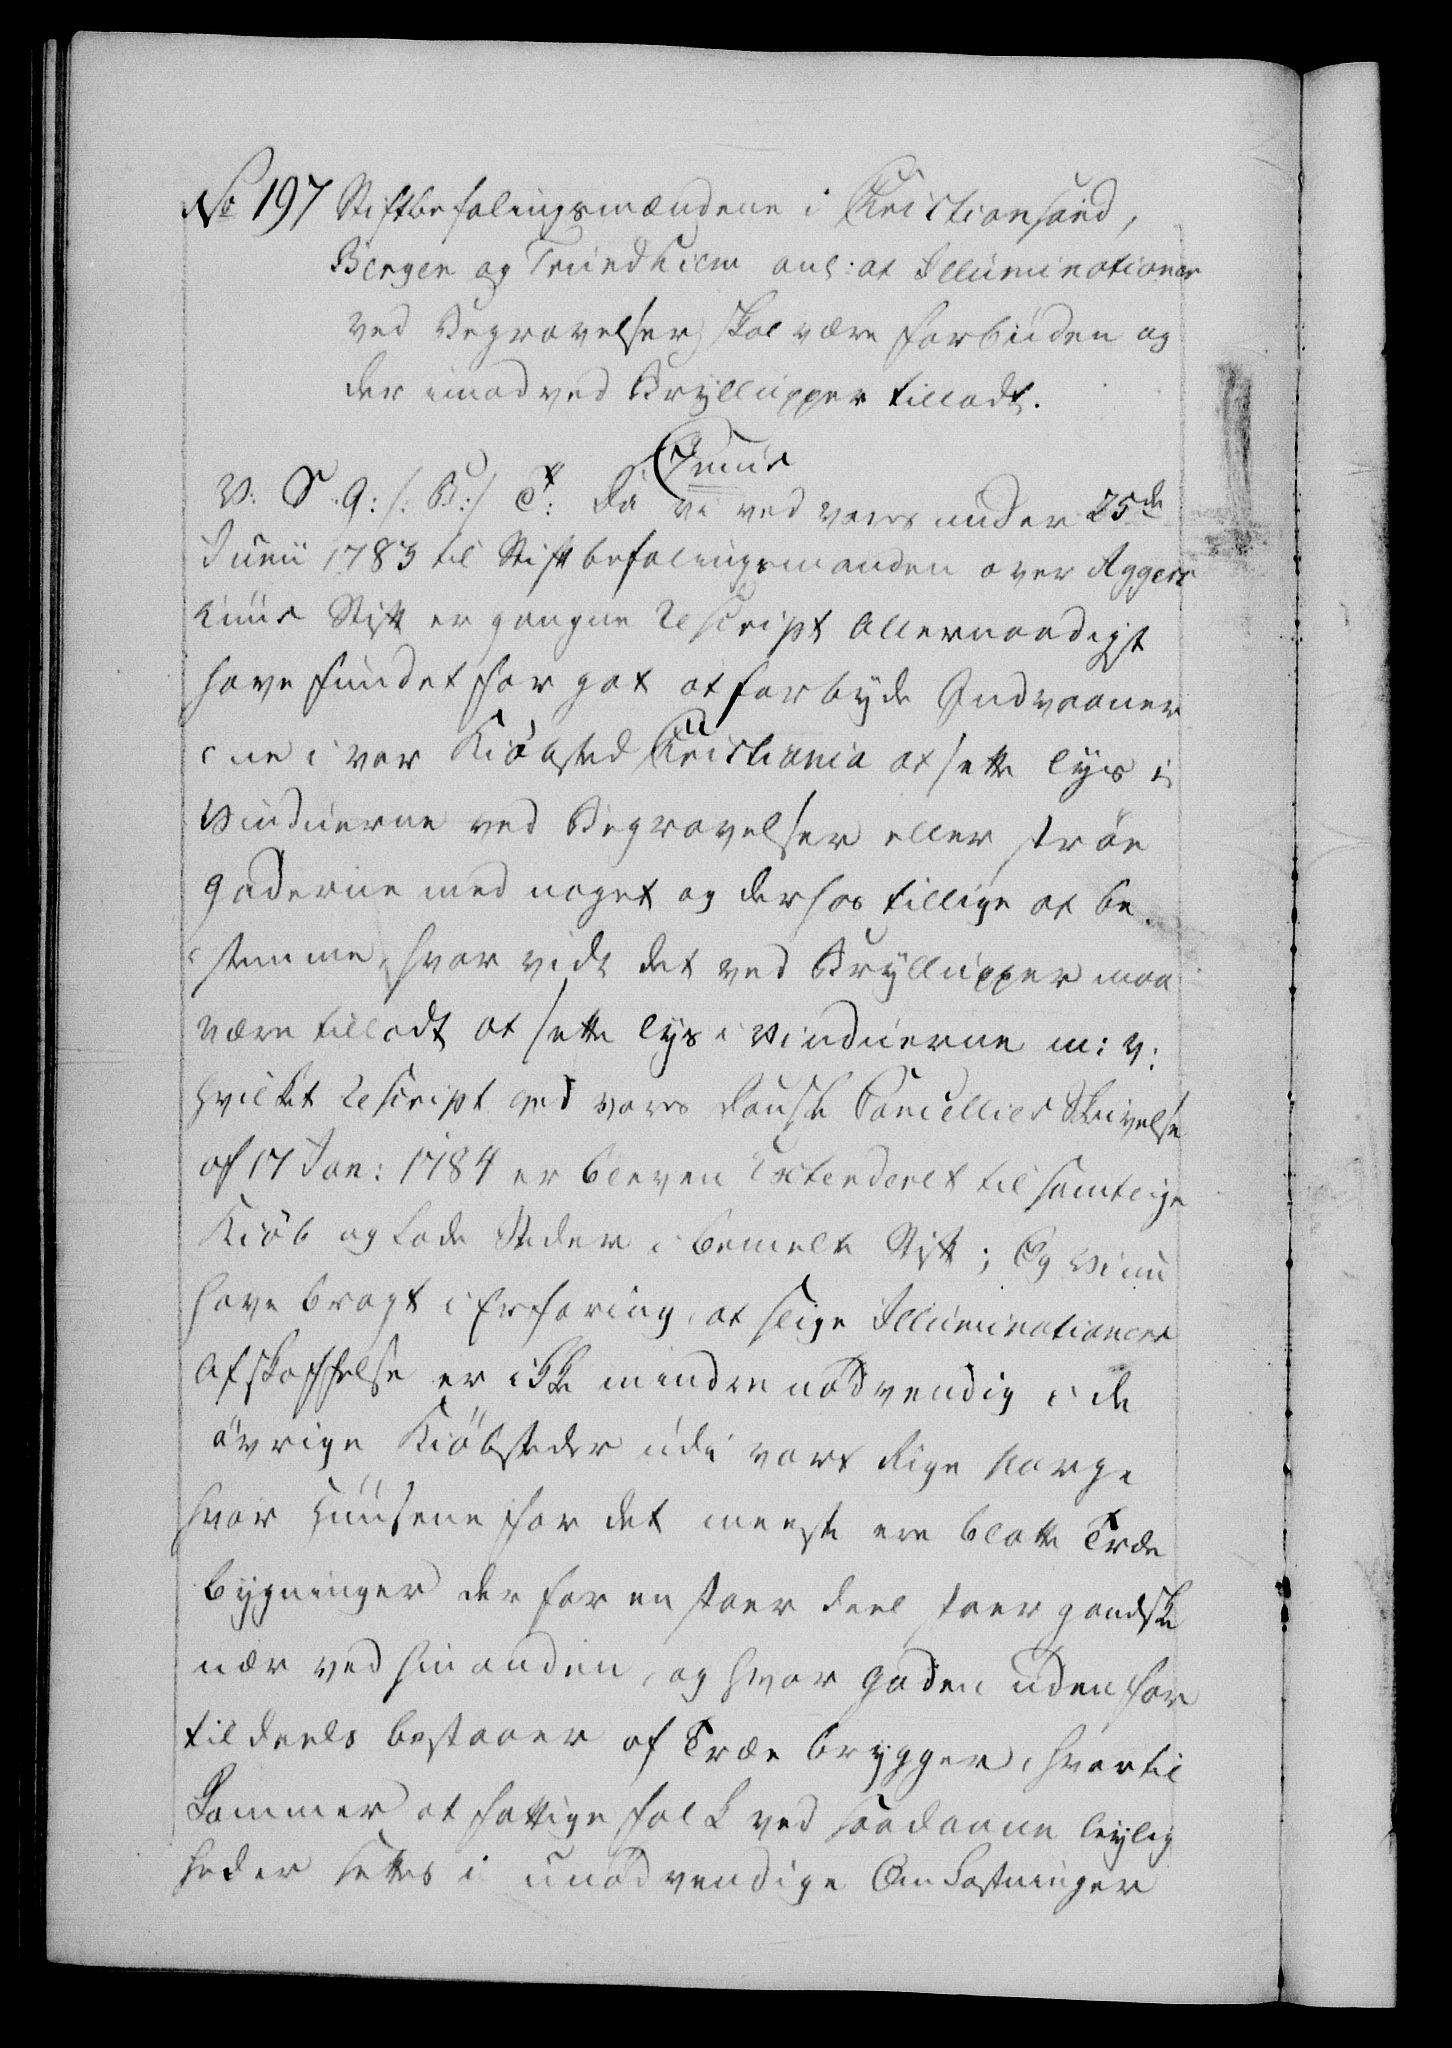 No 197 Stiftbefalingsmændene i Christiansand,
Bergen og Trundhiem anl: at Illuminationer
ved Begravelser skal være forbuden og
der imod ved Bryllupper tilladt.
V: S. G: /: B:/ T: Da vi ved vores under 25de
Junii 1783 til Stiftbefalingsmanden over Aggers
huus Stift ergangne Rescript Allernaadigst
have fundet for got at forbyde Indvaaner
ne i vor Kiöbsted Christiania at sette lys i
Vinduerne ved Begravelser eller ströe
Gaderne med noget og derhos tillige at be
stemme, hvor vidt det ved Bryllupper maa
være tilladt at sette lys i Vinduerne m: v:
hvilket Rescript ved vores danske Cancellies Skrivelse
af 17 Jan: 1784 er bleven Extenderet til samtlige
Kiöb og Lade Stæder i bemelte Stift; Og Vi nu
have bragt i Erfaring, at slige Illuminationers
Afskaffelse er ikke mindre nödvendig i de
övrige Kiöbstæder udi vort Rige Norge
hvor Huusene for det meeste ere blotte Træ
bygninger der for en stoer deel staer gandske
nær ved hinanden, og hvor Gaden uden for
til deels bestaaer af Træe brygger, hvortil
kommer at fattige folk ved saadanne leylig
heder settes i unödvendige Omkostninger